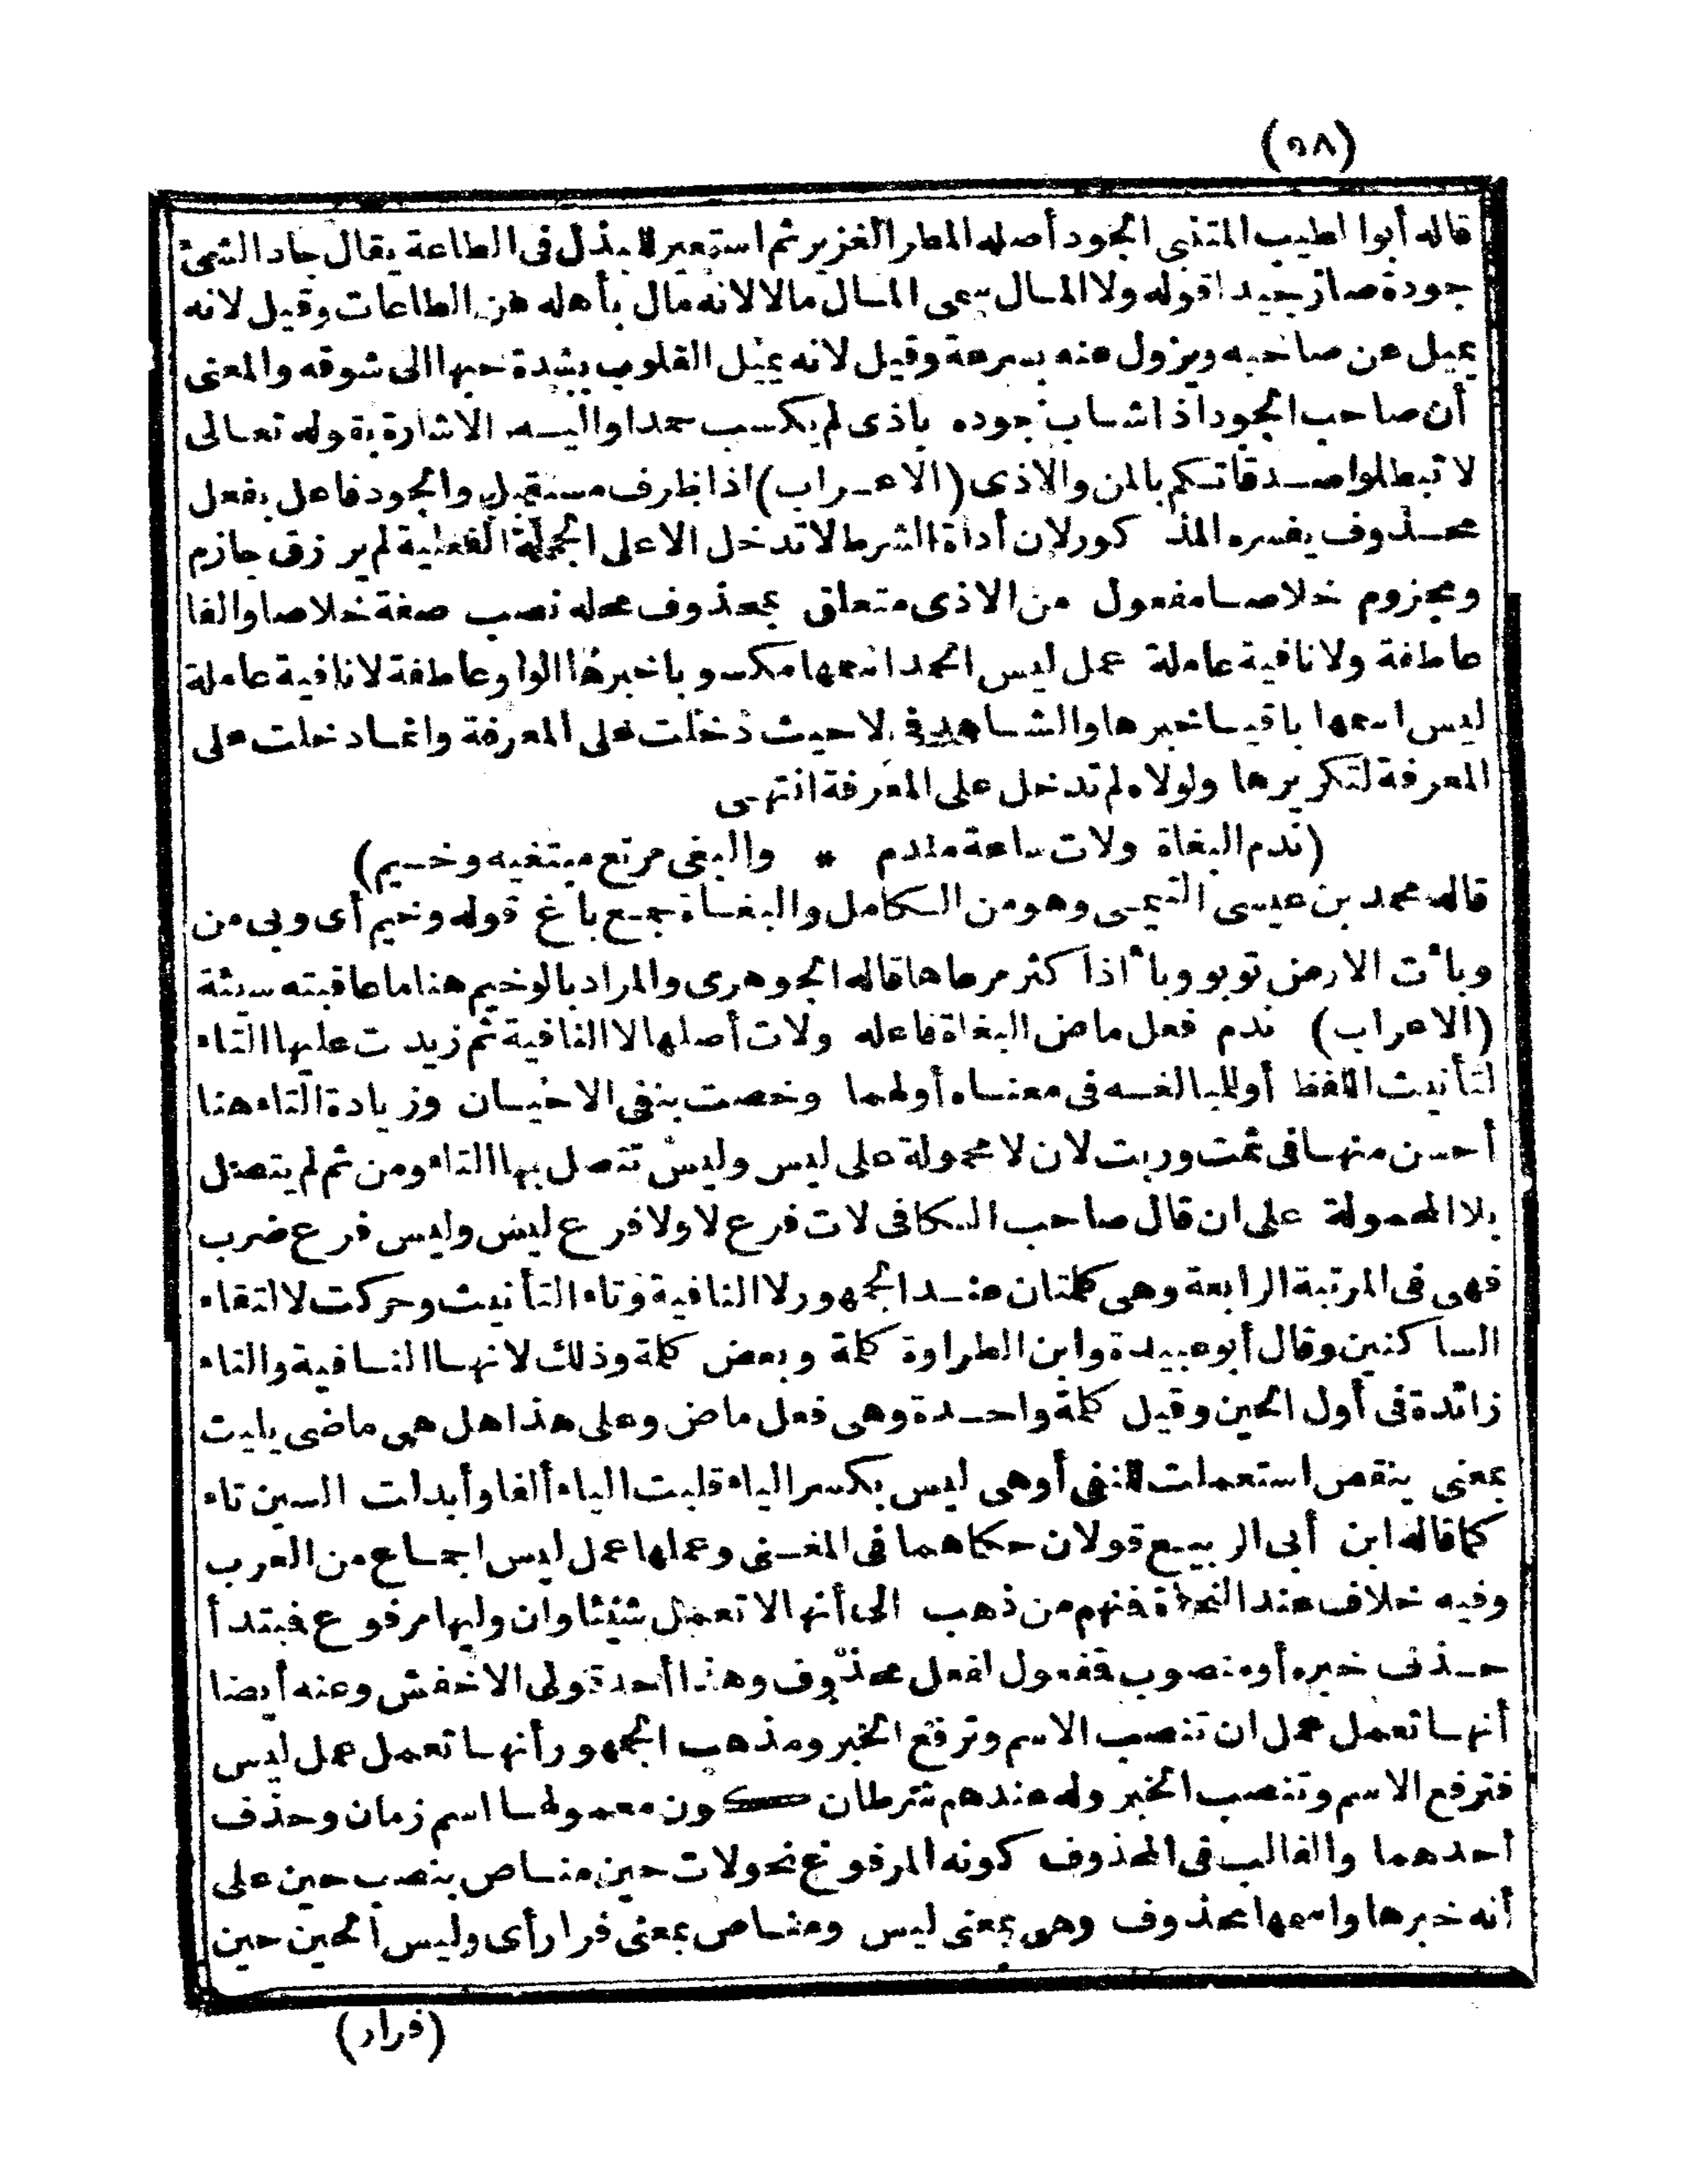 (٥٨)
قاله أبوا لطيب المتنبي الجود أصله المطر الغزير ثم استعير للبذل في الطاعة يقال جاد الشئ
جودة صار جيدا قوله ولا المال سمى المال مالا لانه مال بأهله عن الطاعات وقيل لانه
يميل عن صاحبه ويزول عنه بسرعة وقيل لانه يميل القلوب بشدة حبها الى شوقه والمعنى
أن صاحب الجود اذا شاب جوده باذى لم يكسب حمدا واليه الاشارة بقوله تعالى
لا تبطلوا صدقاتكم بالمن والاذى (الاعراب) اذا ظرف مستقبل والجود فاعل بفعل
محذوف يفسره المذكور لان أداة الشرط لا تدخل الا على الجملة الفعلية لم يرزق جازم
ومجزوم خلاصا مفعول من الاذى متعلق بمحذوف محله نصب صفة خلاصا والفا
عاطفة ولا نافية عاملة عمل ليس الحمد اسمها مكسوبا خبرها الواو عاطفة لا نافية عاملة
ليس اسمها باقيا خبرها والشاهد في لا حيث دخلت على المعرفة وانما دخلت على
المعرفة لتكريرها ولولاه لم تدخل على المعرفة انتهى
(ندم البغاة ولات ساعة مندم * والبغى مرتع مبتغيه وخيم)
قاله محمد بن عيسى التيمى وهو من الكامل والبغاة جمع باغ قوله وخيم أى وبى من
وبأت الارض توبو وبأ اذا كثر مرعاها قاله الجوهرى والمراد بالوخيم هنا ما عاقبته سيئة
(الاعراب) ندم فعل ماض البغاة فاعله ولات أصلها لا النافية ثم زيدت عليها التاء
لتأنيث اللفظ أو للمبالغسه فى معناه أولهما وخصت بنفى الاحيان وزيادة التاء هنا
أحسن منها فى ثمت وربت لان لا محمولة على ليس وليس تتصل بها التاء ومن ثم لم يتصل
بلا المحمولة على ان قال صاحب الكافى لات فرع لا ولا فرع ليس وليس فرع ضرب
فهى فى المرتبة الرابعة وهى كلمتان عند الجمهور لا النافية وتاء التأنيث وحركت لالتقاء
الساكنين وقال أبوعبيدة وابن الطراوة كلمة وبعض كلمة وذلك لانها النافية والتاء
زائدة فى أول الحين وقيل كلمة واحدة وهى فعل ماض وعلى هذا هل هى ماضى يليت
بمعنى ينقص استعملت للنفى أو هى ليس بكسر الياء قلبت الياء ألفا وأبدلت السين تاء
كما قاله ابن أبى الربيع قولان حكاهما فى المغنى وعملها عمل ليس اجماع من العرب
وفيه خلاف عند النحاة فنهم من ذهب الى أنها لا تعمل شيئا وان وليها مرفوع فبتدأ
حذف خبره أو منصوب ففعول لفعل محذوف وهذا أحد قولى الاخفش وعنه أيضا
أنها تعمل عمل ان تنصب الاسم وترفع الخبر ومذهب الجمهور أنها تعمل عمل ليس
فترفع الاسم وتنصب الخبر وله عندهم شرطان كون معمولها اسم زمان وحذف
أحدهما والغالب فى المحذوف كونه المرفوع نحو ولات حين مناص بنصب حين على
أنه خبرها واسمها محذوف وهى بمعنى ليس ومناص بمعنى فرار أى وليس الحين حين
(فرار)